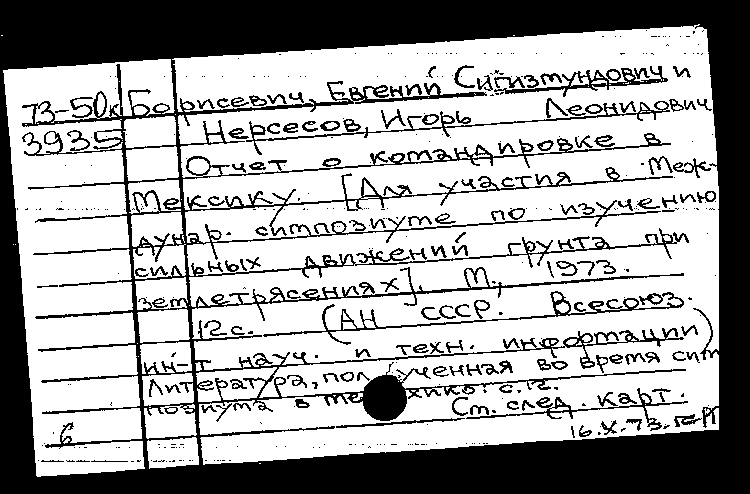 73-50к Борисевич, Евгений Сигизмундович и
3935 Нерсесов, Игорь Леонидович
Отчет о командировке в
Мексику. [Для участия в Меж-
дунар. симпозиуме по изучению
сильных движений грунта при
землетрясениях]. М., 1973.
12 с. (АН СССР. Всесоюз.
ин-т науч. и техн. информации)
Литература, полученная во время сим
позиума в Мехико: с. 12.
См. след. карт.
6 16.X.73.